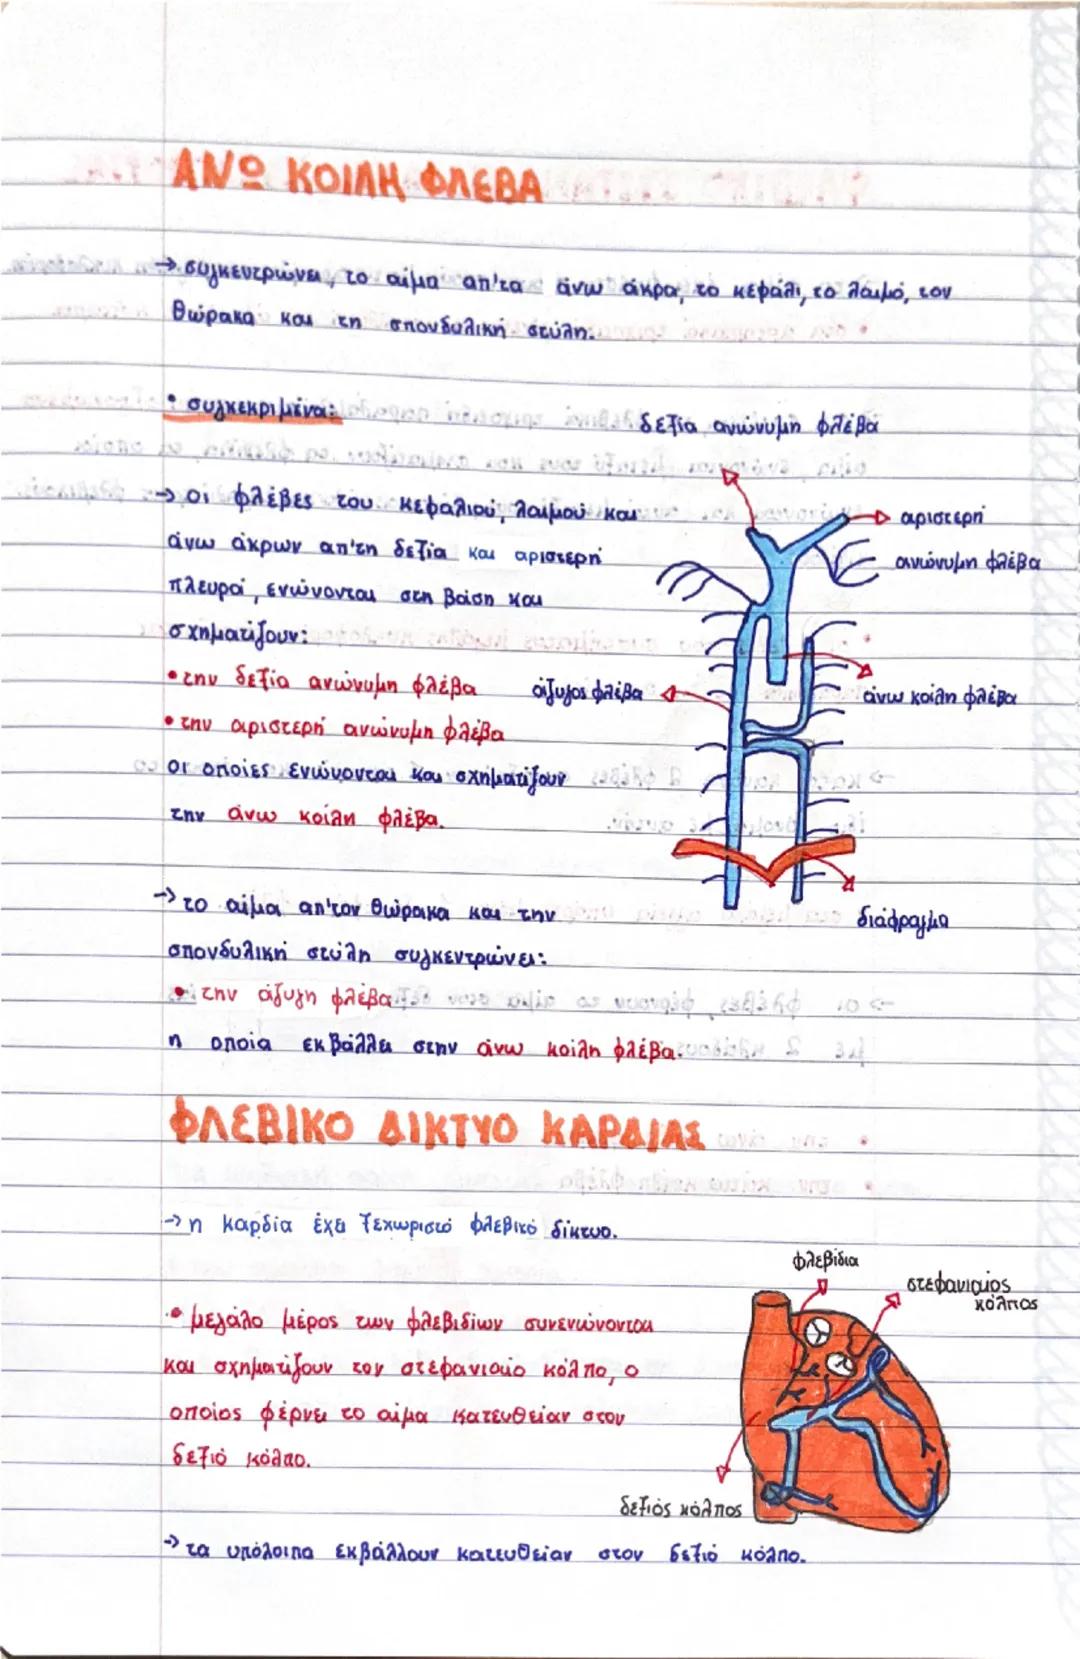 ΑΝΩ ΚΟΙΛΗ ΦΛΕΒΑ
→ συγκεντρώνει, το αίμα απ'τα άνω άκρα, το κεφάλι, το λαιμό, τον
θώρακα και τη σπονδυλική στύλη.
• συγκεκριμένα:
δεξία ανώνυμη φλέβα
→ οι φλέβες του κεφαλιού, λαιμού και
άνω άκρων απ'τη δεξία και αριστερή
πλευρά, ενώνονται στη βάση και
σχηματίζουν:
αριστερή
ανώνυμη φλέβα
• την δεξία ανώνυμη φλέβα
άζυγος φλέβα
άνω κοίλη φλέβα
• την αριστερή ανώνυμη φλέβα
οι οποίες ενώνονται και σχηματίζουν
την άνω κοίλη φλέβα.
→ το αίμα απ'τον θώρακα και την
διάφραγμα
σπονδυλική στύλη συγκεντρώνει:
• την άζυγη φλέβα
η οποία εκβάλλει στην άνω κοίλη φλέβα.
ΦΛΕΒΙΚΟ ΔΙΚΤΥΟ ΚΑΡΔΙΑΣ
→ η καρδία έχει ξεχωριστό φλεβικό δίκτυο.
φλεβίδια
στεφανιαίος
κόλπος
• μεγάλο μέρος των φλεβιδίων συνενώνονται
και σχηματίζουν τον στεφανιαίο κόλπο, ο
οποίος φέρνει το αίμα κατευθείαν στον
δεξιό κόλπο.
δεξιός κόλπος
→ τα υπόλοιπα εκβάλλουν κατευθείαν στον δεξιό κόλπο.